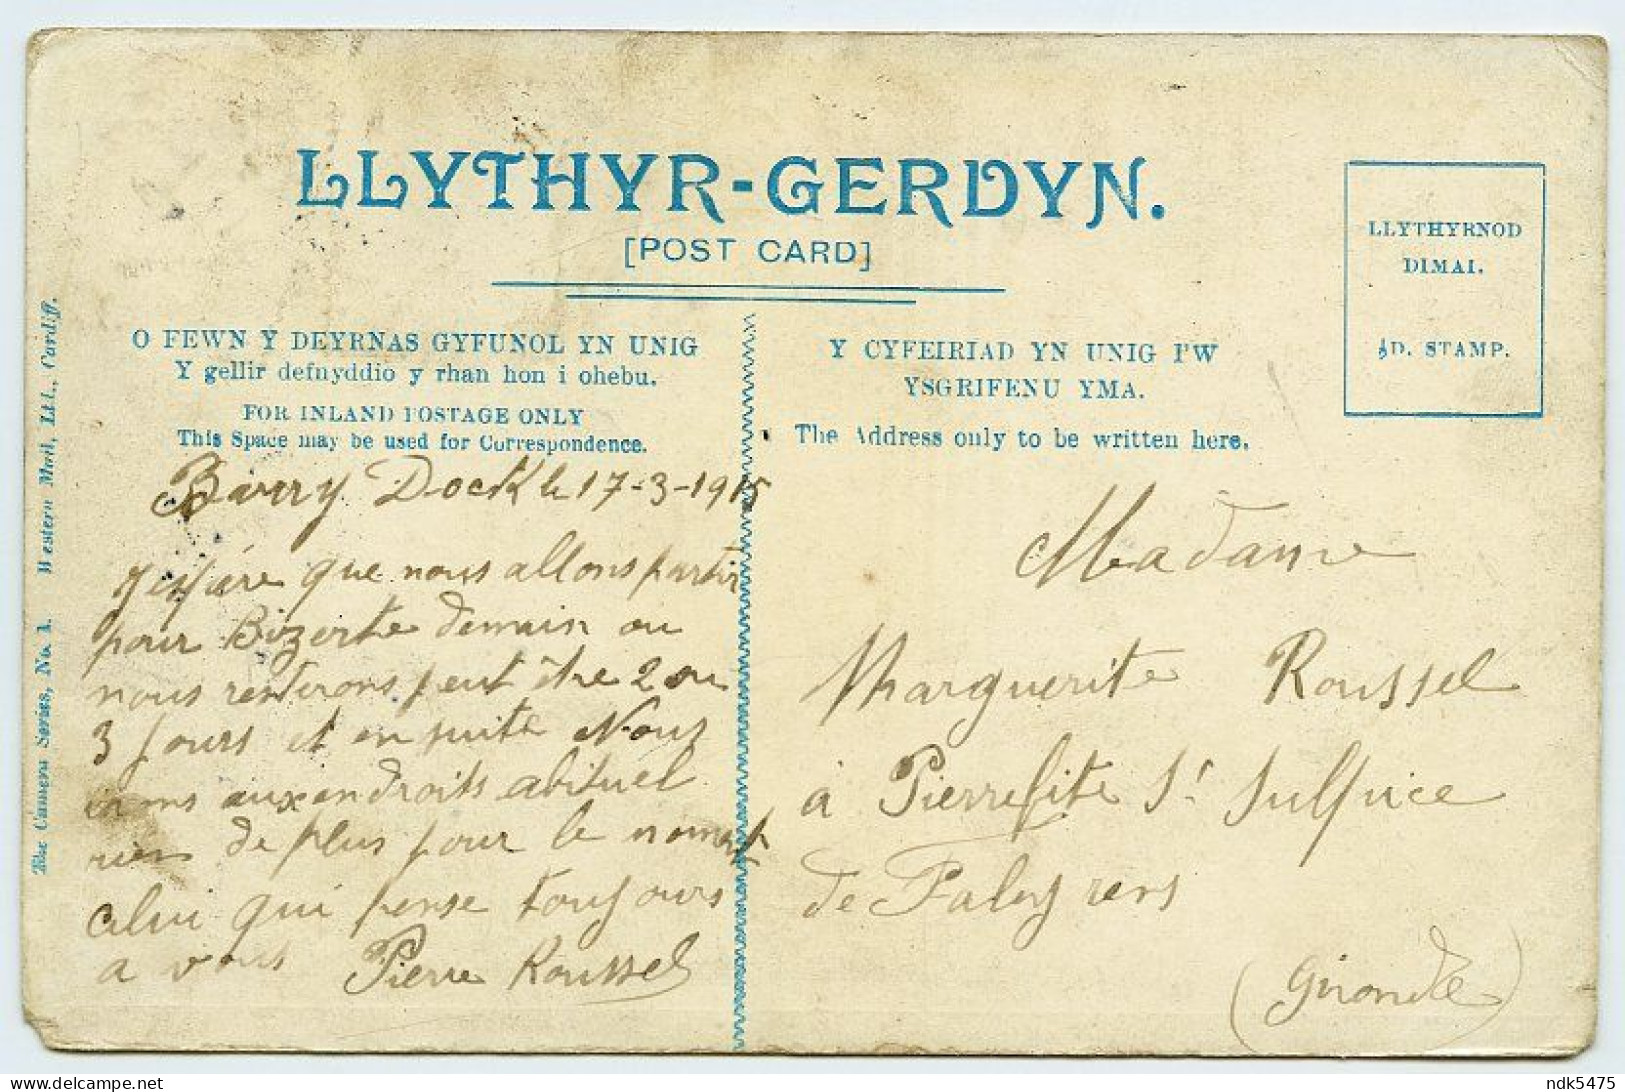 LLYTHYR-GERDYN.
[POST CARD]
LLYTHYRNOD
DIMAI.
½D. STAMP.
O FEWN Y DEYRNAS GYFUNOL YN UNIG
Y gellir defnyddio y rhan hon i ohebu.
FOR INLAND POSTAGE ONLY
This Space may be used for Correspondence.
Y CYFEIRIAD YN UNIG I'W
YSGRIFENU YMA.
The Address only to be written here.
The Camera Series, No. 1. Western Mail, Ltd., Cardiff.
Barry Dock le 17-3-1915
J'espère que nous allons partir
pour Bizerte demain ou
nous resterons peut être 2 ou
3 jours et en suite Nous
irons aux endroits abituel
rien de plus pour le moment
celui qui pense toujours
a vous Pierre Roussel
Madame
Marguerite Roussel
à Pierrefite St Sulpice
de Faleyrens
(Gironde)
ndk5475